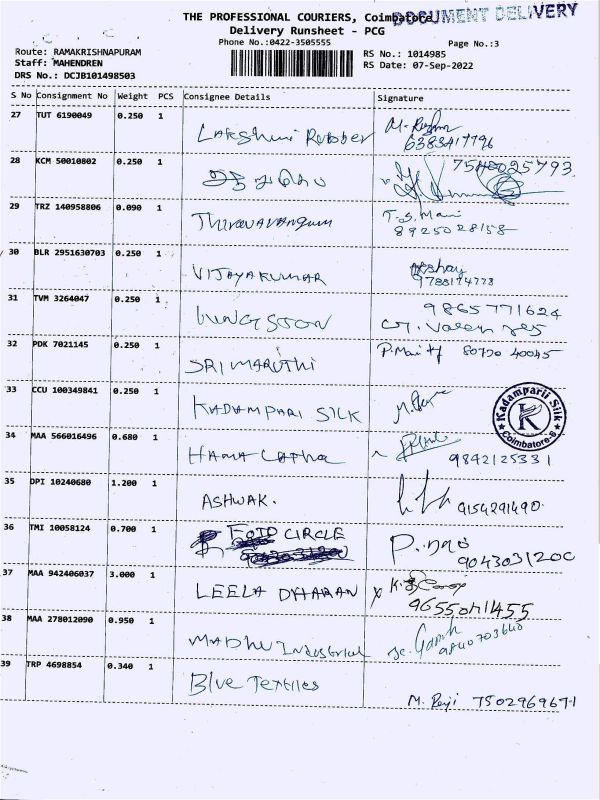 THE PROFESSIONAL COURIERS, Coimbatore
DOCUMENT DELIVERY
Delivery Runsheet - PCG
Phone No.:0422-3505555
Page No.:3
Route: RAMAKRISHNAPURAM
RS No.: 1014985
Staff: MAHENDREN
RS Date: 07-Sep-2022
DRS No.: DCJB101498503
S No Consignment No Weight PCS Consignee Details Signature
27 TUT 6190049 0.250 1
Lakshmi Rubber
6383417796
28 KCM 50010802 0.250 1
29 TRZ 140958806 0.090 1
Thiruvarangum T.S. Mani
8925028158
30 BLR 2951630703 0.250 1
VIJAYAKUMAR Akshay
9788174778
31 TVM 3264047 0.250 1
9865771624
32 PDK 7021145 0.250 1
SRI MARUTHI
33 CCU 100349841 0.250 1
KADAMPARI SILK
Kadamparii Silk
K
Coimbatore-6
34 MAA 566016496 0.680 1
Hama Latha
9842125331
35 DPI 10240680 1.200 1
ASHWAK. 9154291490
36 TMI 10058124 0.700 1
CIRCLE
9043031200
37 MAA 942406037 3.000 1
LEELA DHARAN
38 MAA 278012090 0.950 1
Madhu Industrial
39 TRP 4698854 0.340 1
Blue Textiles
M. Reji 7502969671